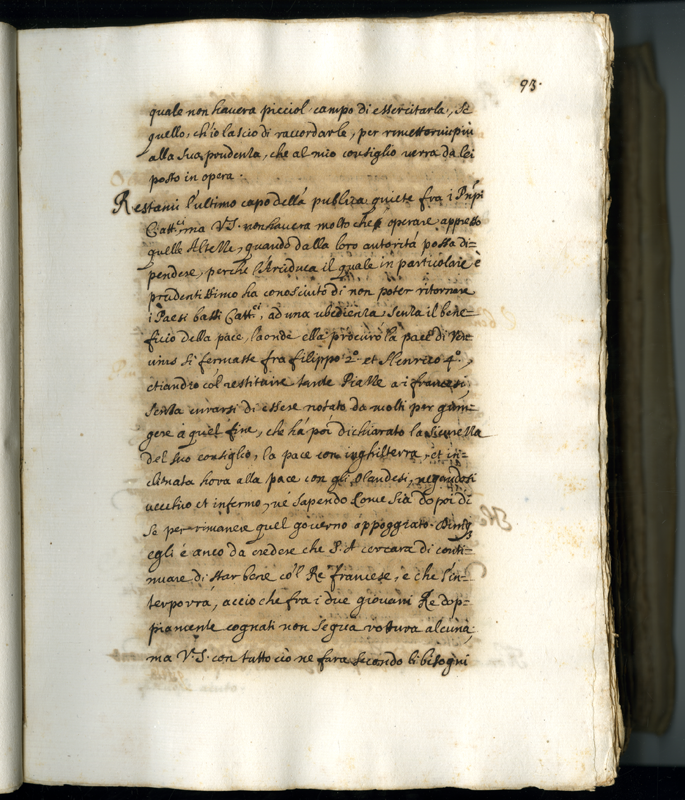 93.
quale non havera picciol campo di essercitarla, Se
quello, ch'io lascio di raccordarle, per rimettermi più
alla Sua prudenza, che al mio consiglio verra da lei
posto in opera.
Restami l'ultimo capo della publica quiete fra i Pnpi
Cattci, ma V.S. non havera molto che operare appresso
quelle Altezze, quando dalla loro autorità possa di=
pendere, perche l'Arciduca il quale in particolare è
prudentissimo ha conosciuto di non poter ritornare
i Paesi bassi Cattci, ad una ubedienza, senza il bene
ficio della pace, laonde ella procurò la pace di Ver
uins si fermasse fra filippo 2o. et Henrico 4o.,
etiandio col restituire tante Piazze a i francesi,
senza curarsi di essere notato da molti per giun=
gere à quel fine, che há poi dichiarato la sicurezza
del suo consiglio, la pace con inghilterra, et in=
clinata hora alla pace con gli Olandesi,
vecchio et infermo, né sapendo come sia dopoi di
se per rimanere quel governo appoggiato.
egli è anco da credere che P.A cercara di conti=
nuare di star bene co'l Re francese, e che l'in=
terporrá, accio che fra i due giovani Re dop=
piamente cognati non segua rottura alcuna,
ma V.S. con tutto ciò ne fara secondo li bisogni